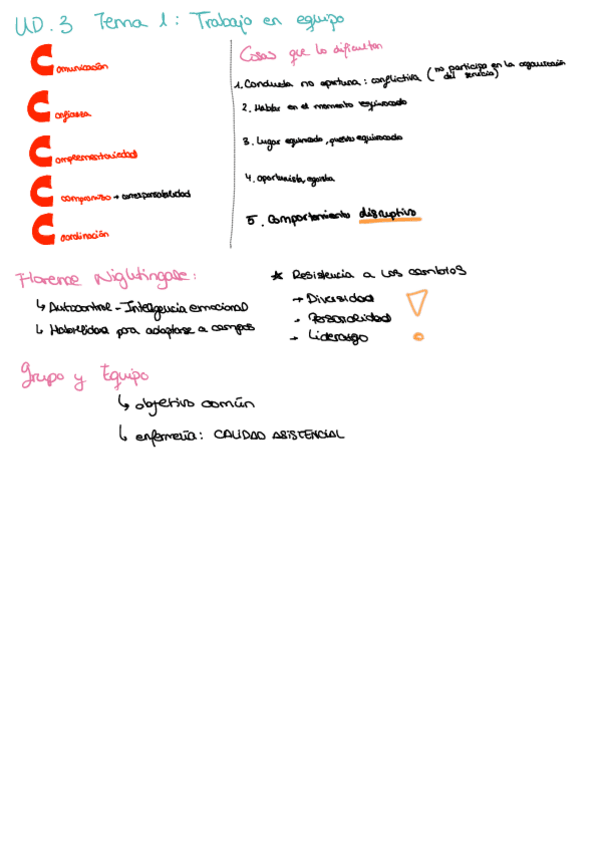 UD.3 Tema 1: Trabajo en equipo
Comunicación
Confianza
Complementariedad
Compromiso → corresponsabilidad
Coordinación
Cosas que lo dificultan
1. Conducta no oportuna: conflictiva (no participa en la organización del servicio)
2. Hablar en el momento equivocado
3. Lugar equivocado, puesto equivocado
4. oportunista, egoista
5. Comportamiento disruptivo
Florence Nightingale:
↳ Autocontrol - Inteligencia emocional
↳ Habilidad para adaptarse a campos
* Resistencia a los cambios
→ Diversidad
→ Personalidad
→ Liderazgo
Grupo y Equipo
↳ objetivo común
↳ enfermería: CALIDAD ASISTENCIAL